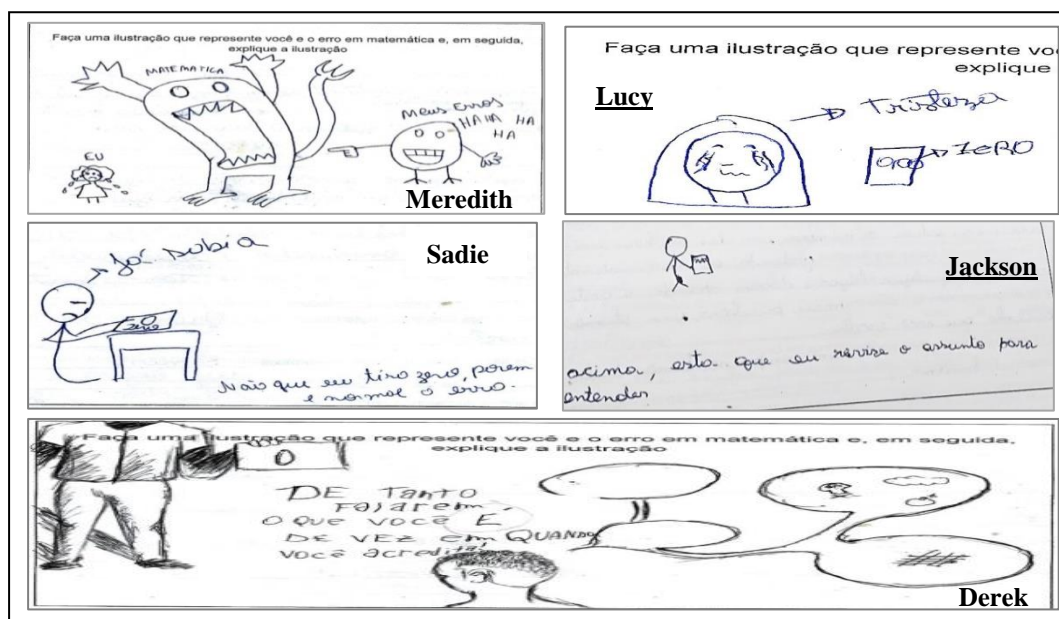 Faça uma ilustração que represente você e o erro em matemática e, em seguida,
explique a ilustração
MATEMÁTICA
EU
MEUS ERROS
HAHA HA
HA
Meredith
Faça uma ilustração que represente vo
explique
Lucy
Tristeza
ZERO
Já sabia
Sadie
zero
Não que eu tiro zero, porem
e normal o erro.
Jackson
acima, esta que eu revise o assunto para
entender
Faça uma ilustração que represente você e o erro em matemática e, em seguida,
explique a ilustração
0
DE TANTO
FALAREM,
O QUE VOCÊ É
DE VEZ EM QUANDO
VOCÊ acredita,
Derek